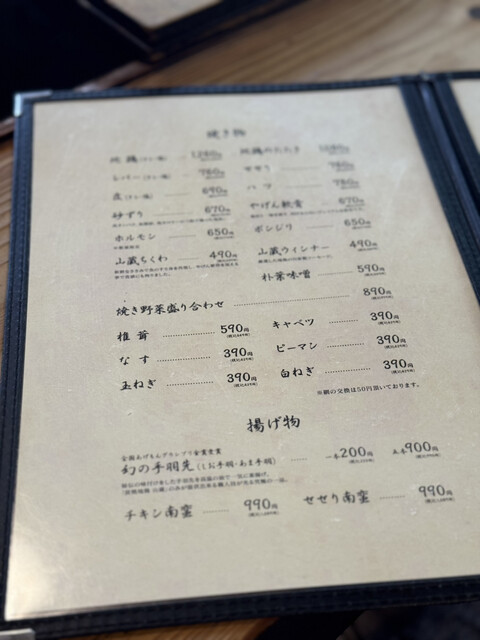 焼き物
地鶏(タレ・塩) 1280円 地鶏のたたき 1080円
レバー(タレ・塩) 760円 せせり 760円
皮(タレ・塩) 690円 ハツ 760円
砂ずり 670円 やげん軟骨 670円
ホルモン 650円 ボンジリ 650円
山蔵ちくわ 490円 山蔵ウィンナー 490円
朴葉味噌 590円
焼き野菜盛り合わせ 890円
椎茸 590円 キャベツ 390円
なす 390円 ピーマン 390円
玉ねぎ 390円 白ねぎ 390円
※網の交換は50円頂いております。
揚げ物
全国あげもんグランプリ金賞受賞
幻の手羽先(しお手羽・あま手羽) 一本200円 五本900円
チキン南蛮 990円 せせり南蛮 990円